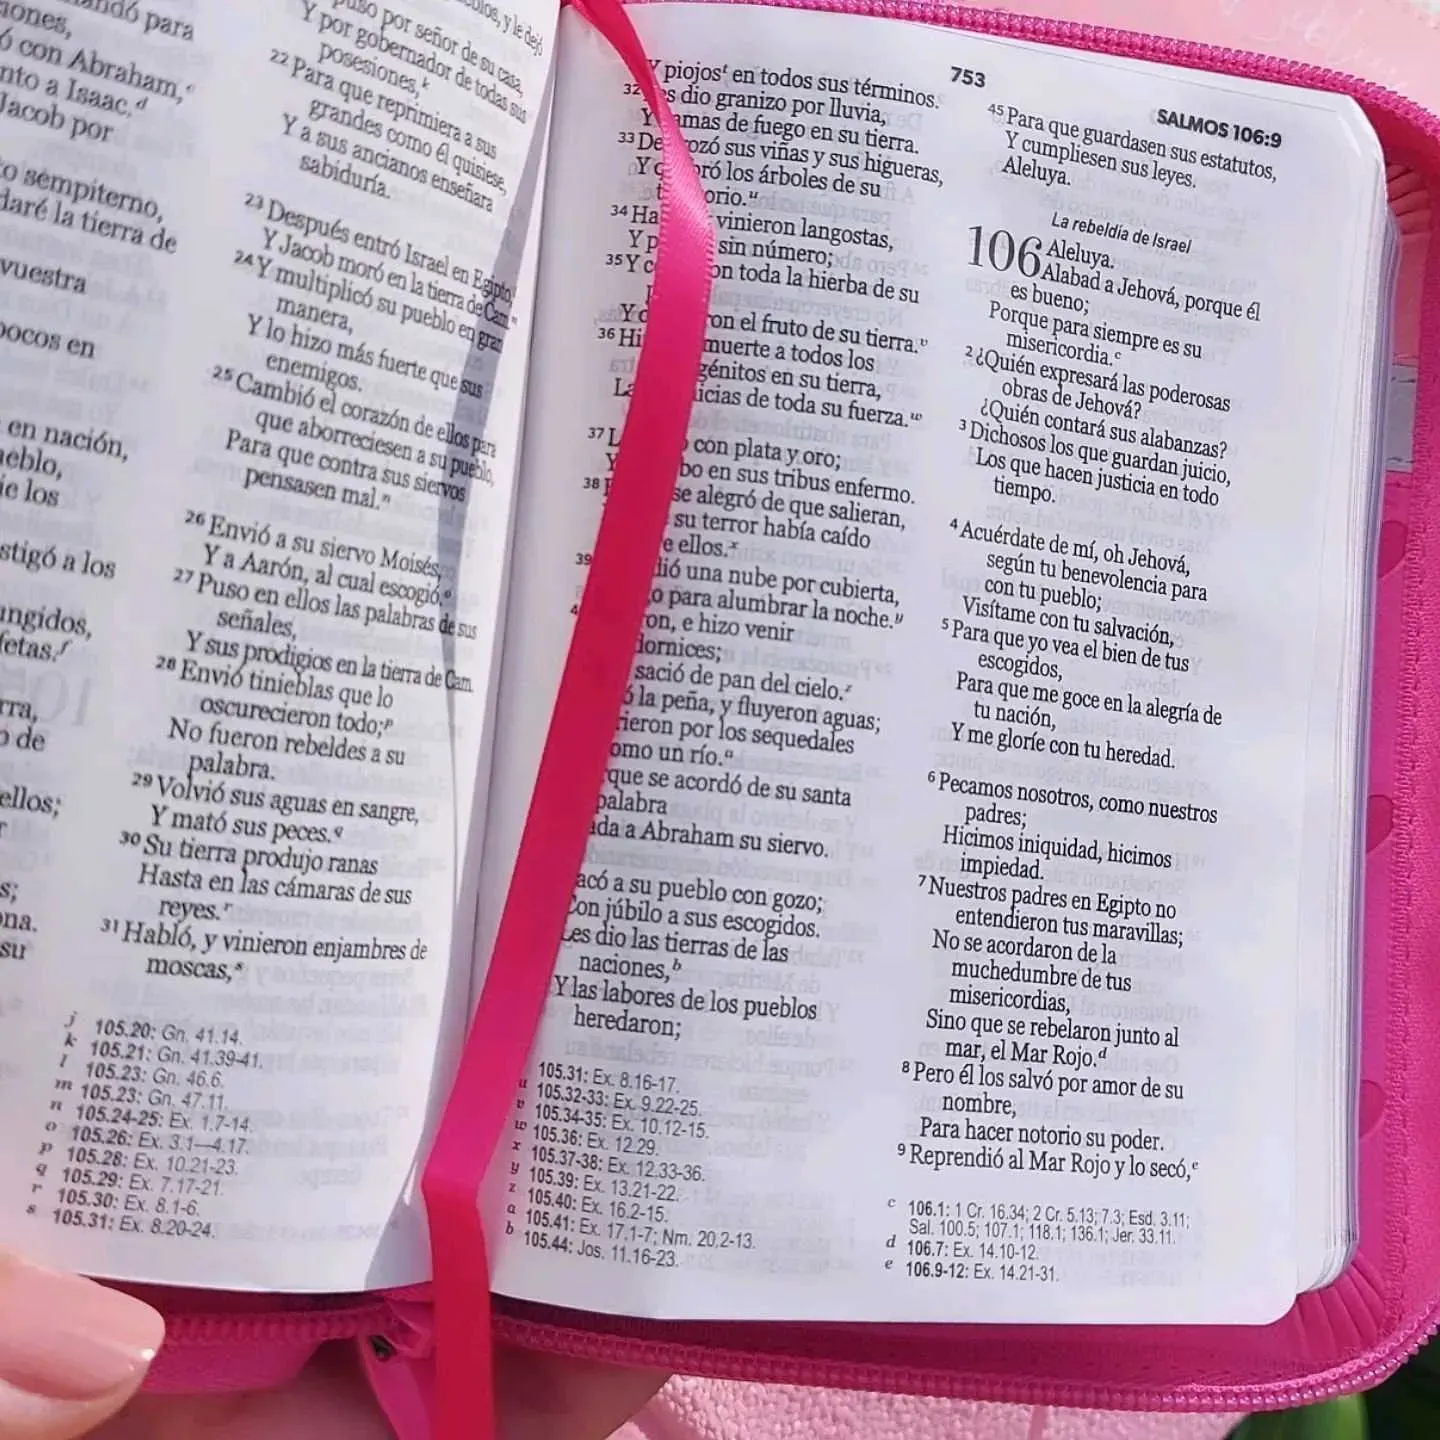 ndó para
iones,
ó con Abraham,ᶜ
nto a Isaac,ᵈ
Jacob por
to sempiterno,
daré la tierra de
vuestra
pocos en
en nación,
ueblo,
ie los
stigó a los
ungidos,
fetas.ᶠ
rra,
o de
ellos;
r
s;
ona.
su
y le dejó
puso por señor de su casa,
Y por gobernador de todas sus
posesiones,ᵏ
22 Para que reprimiera a sus
grandes como él quisiese,
Y a sus ancianos enseñara
sabiduría.
23 Después entró Israel en Egipto,ˡ
Y Jacob moró en la tierra de Cam.ᵐ
24 Y multiplicó su pueblo en gran
manera,
Y lo hizo más fuerte que sus
enemigos.
25 Cambió el corazón de ellos para
que aborreciesen a su pueblo,
Para que contra sus siervos
pensasen mal.ⁿ
26 Envió a su siervo Moisés,
Y a Aarón, al cual escogió.ᵒ
27 Puso en ellos las palabras de sus
señales,
Y sus prodigios en la tierra de Cam.
28 Envió tinieblas que lo
oscurecieron todo;ᵖ
No fueron rebeldes a su
palabra.
29 Volvió sus aguas en sangre,
Y mató sus peces.q
30 Su tierra produjo ranas
Hasta en las cámaras de sus
reyes.ʳ
31 Habló, y vinieron enjambres de
moscas,ˢ
j 105.20: Gn. 41.14.
k 105.21: Gn. 41.39-41.
l 105.23: Gn. 46.6.
m 105.23: Gn. 47.11.
n 105.24-25: Ex. 1.7-14.
o 105.26: Ex. 3.1—4.17.
p 105.28: Ex. 10.21-23.
q 105.29: Ex. 7.17-21.
r 105.30: Ex. 8.1-6.
s 105.31: Ex. 8.20-24.
753
SALMOS 106:9
Y piojosᵗ en todos sus términos.
32 es dio granizo por lluvia,
Y amas de fuego en su tierra.
33 De ozó sus viñas y sus higueras,
Y q bró los árboles de su
t orio.ᵘ
34 Ha vinieron langostas,
Y p sin número;
35 Y c on toda la hierba de su
Y d ron el fruto de su tierra.ᵛ
36 Hi muerte a todos los
génitos en su tierra,
La icias de toda su fuerza.ʷ
37 L con plata y oro;
Y bo en sus tribus enfermo.
38 E se alegró de que salieran,
su terror había caído
e ellos.ˣ
39 dió una nube por cubierta,
o para alumbrar la noche.ʸ
4 ron, e hizo venir
dornices;
sació de pan del cielo.ᶻ
ó la peña, y fluyeron aguas;
rieron por los sequedales
omo un río.ᵃ
que se acordó de su santa
palabra
ada a Abraham su siervo.
acó a su pueblo con gozo;
Con júbilo a sus escogidos.
Les dio las tierras de las
naciones,ᵇ
Y las labores de los pueblos
heredaron;
105.31: Ex. 8.16-17.
u 105.32-33: Ex. 9.22-25.
v 105.34-35: Ex. 10.12-15.
w 105.36: Ex. 12.29.
x 105.37-38: Ex. 12.33-36.
y 105.39: Ex. 13.21-22.
z 105.40: Ex. 16.2-15.
a 105.41: Ex. 17.1-7; Nm. 20.2-13.
b 105.44: Jos. 11.16-23.
45 Para que guardasen sus estatutos,
Y cumpliesen sus leyes.
Aleluya.
La rebeldía de Israel
106 Aleluya.
Alabad a Jehová, porque él
es bueno;
Porque para siempre es su
misericordia.ᶜ
2 ¿Quién expresará las poderosas
obras de Jehová?
¿Quién contará sus alabanzas?
3 Dichosos los que guardan juicio,
Los que hacen justicia en todo
tiempo.
4 Acuérdate de mí, oh Jehová,
según tu benevolencia para
con tu pueblo;
Visítame con tu salvación,
5 Para que yo vea el bien de tus
escogidos,
Para que me goce en la alegría de
tu nación,
Y me gloríe con tu heredad.
6 Pecamos nosotros, como nuestros
padres;
Hicimos iniquidad, hicimos
impiedad.
7 Nuestros padres en Egipto no
entendieron tus maravillas;
No se acordaron de la
muchedumbre de tus
misericordias,
Sino que se rebelaron junto al
mar, el Mar Rojo.ᵈ
8 Pero él los salvó por amor de su
nombre,
Para hacer notorio su poder.
9 Reprendió al Mar Rojo y lo secó,ᵉ
c 106.1: 1 Cr. 16.34; 2 Cr. 5.13; 7.3; Esd. 3.11;
Sal. 100.5; 107.1; 118.1; 136.1; Jer. 33.11.
d 106.7: Ex. 14.10-12.
e 106.9-12: Ex. 14.21-31.